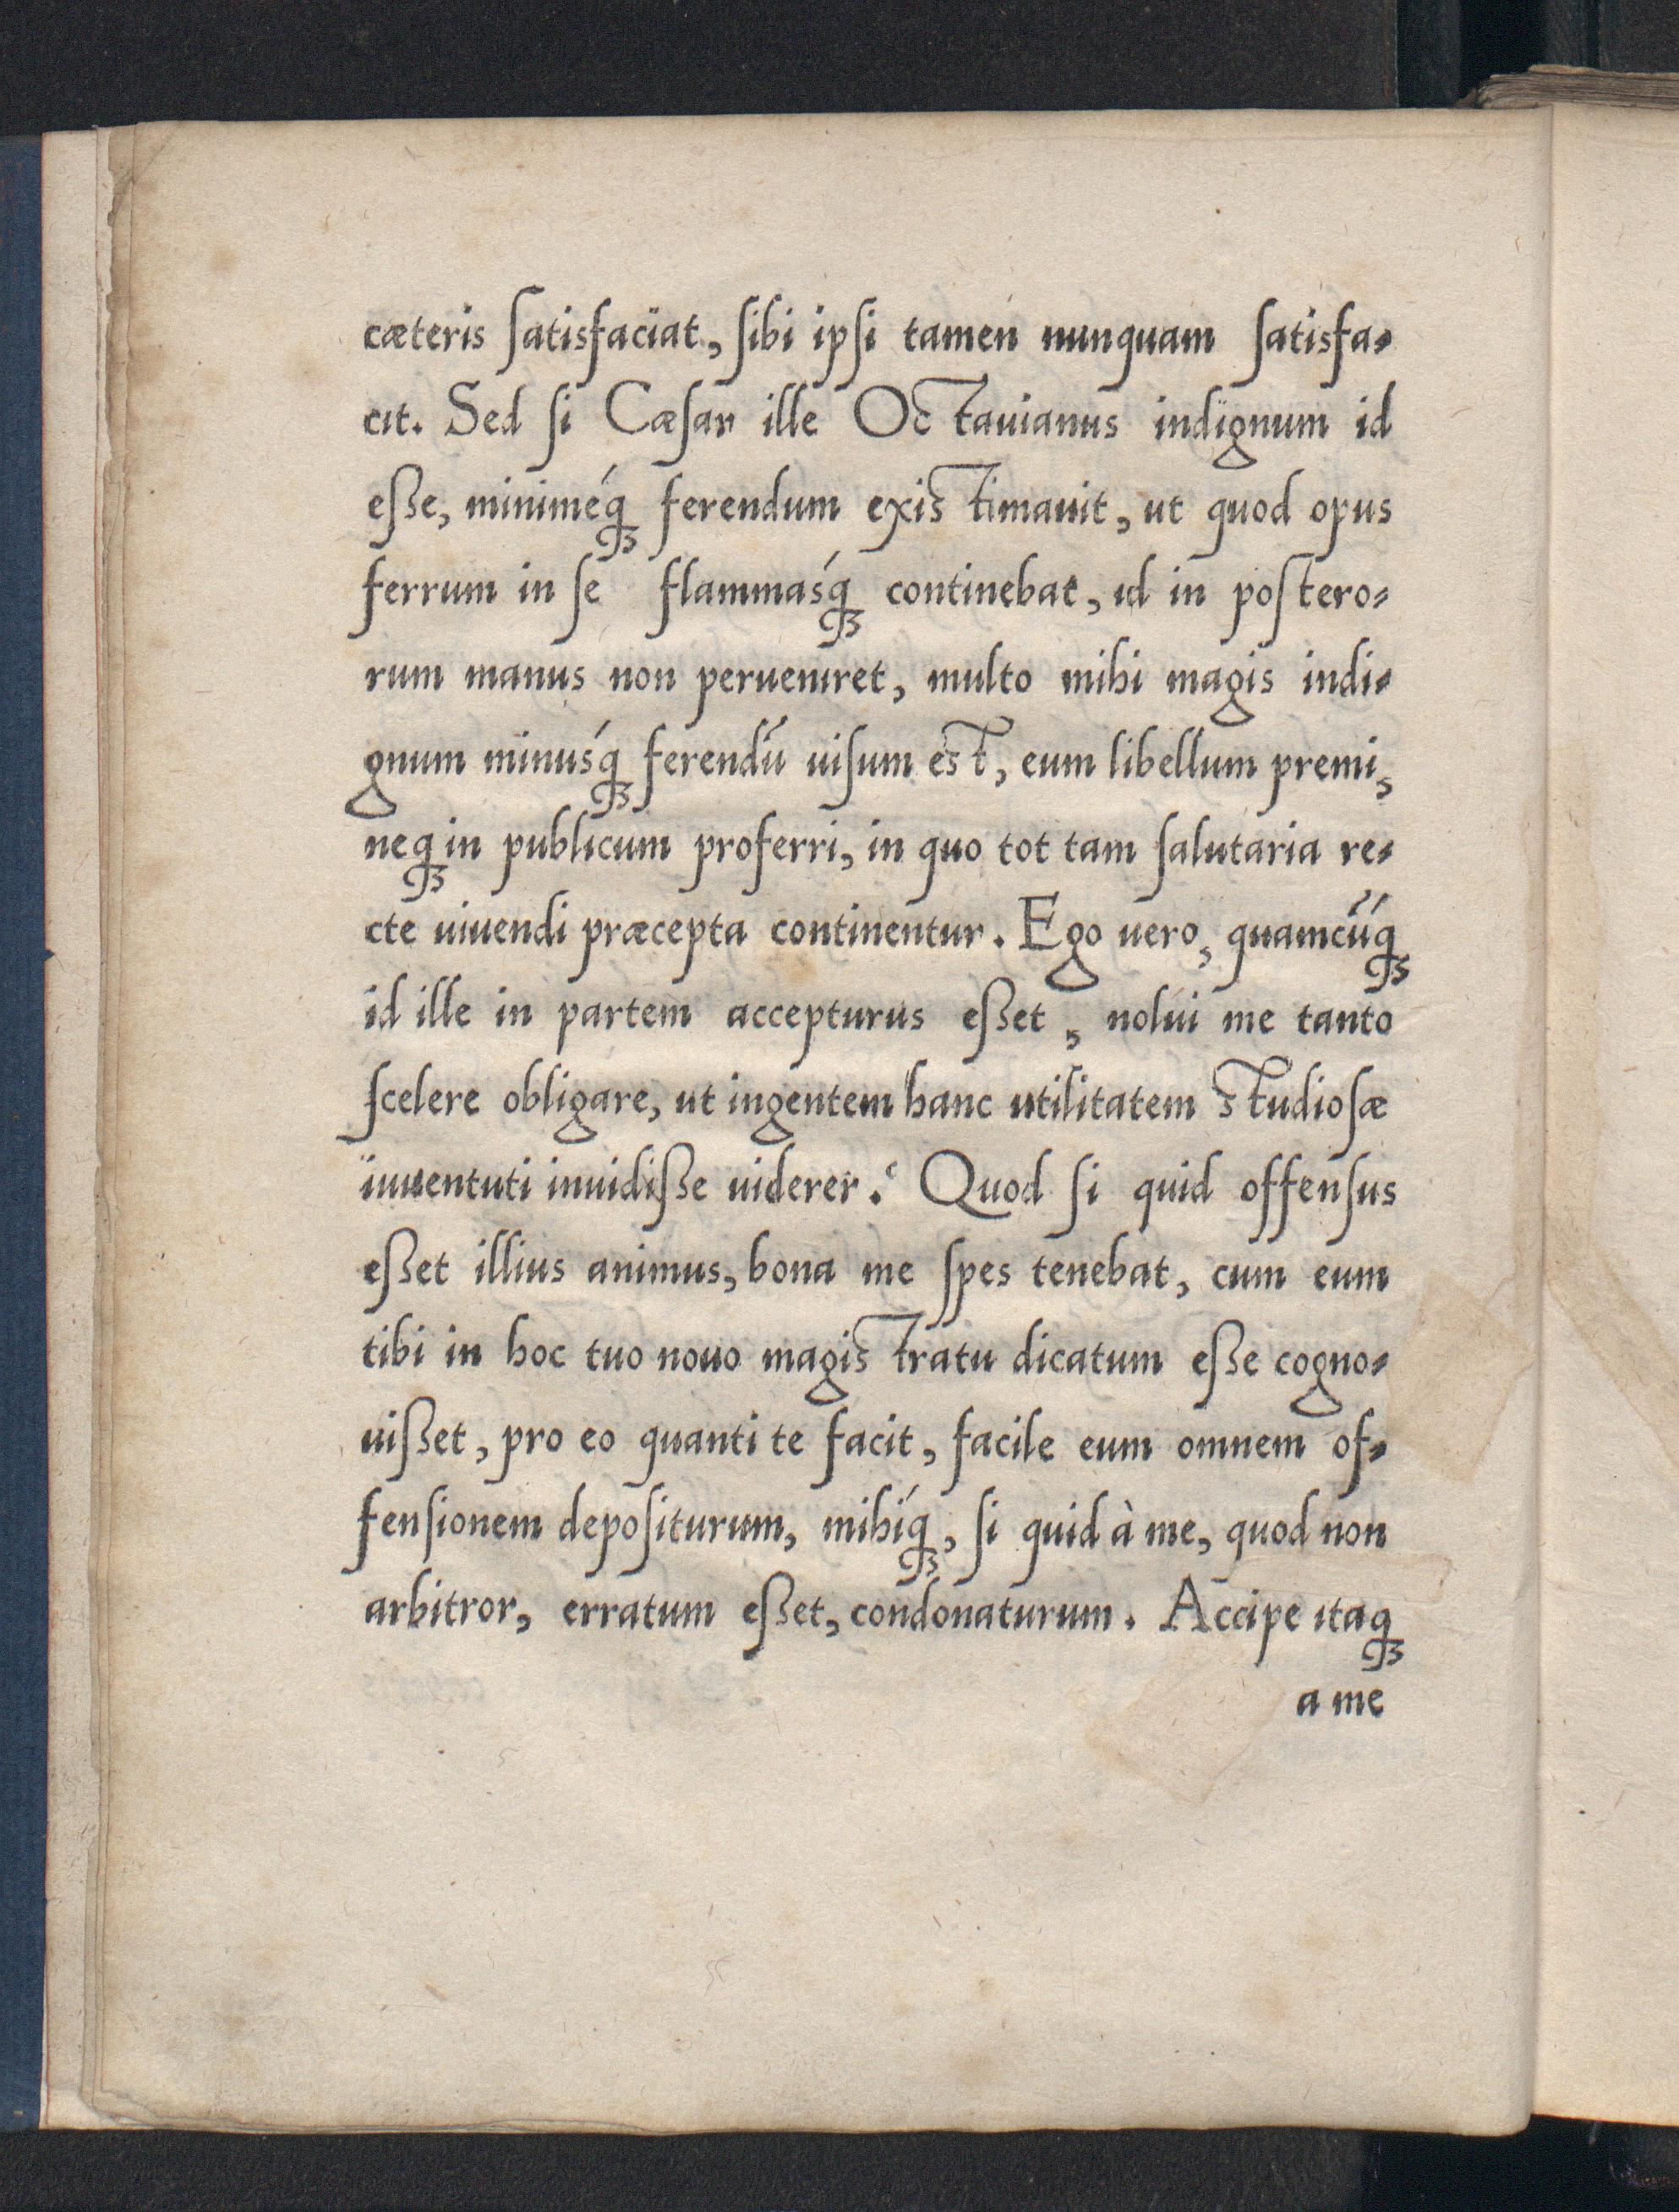 cæteris ſatisfaciat, ſibi ipſi tamen nunquam ſatisfa-
cit. Sed ſi Cæſar ille Octauianus indignum id
eſse, miniméq; ferendum existimauit, ut quod opus
ferrum in ſe flammasq́; continebat, id in poſtero-
rum manus non perueniret, multo mihi magis indi-
gnum minusq́; ferendū uiſum est, eum libellum premi,
neq; in publicum proferri, in quo tot tam ſalutaria re-
cte uiuendi præcepta continentur. Ego uero, quamcūq́;
id ille in partem accepturus eſset, nolui me tanto
ſcelere obligare, ut ingentem hanc utilitatem studioſæ
iuuentuti inuidiſse uiderer. Quod ſi quid offenſus
eſset illius animus, bona me ſpes tenebat, cum eum
tibi in hoc tuo nouo magistratu dicatum eſse cogno-
uiſset, pro eo quanti te facit, facile eum omnem of-
fenſionem depoſiturum, mihiq́;, ſi quid à me, quod non
arbitror, erratum eſset, condonaturum. Accipe itaq;
a me